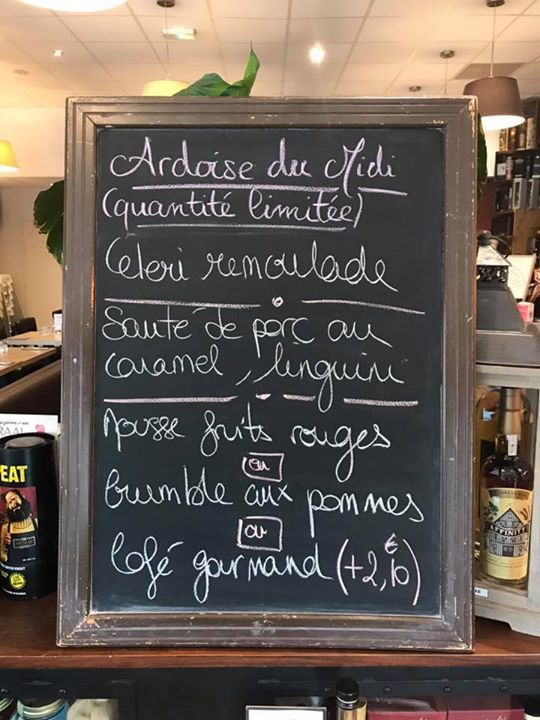 Ardoise du Midi
(quantité limitée)
Céleri remoulade
Sauté de porc au
caramel, linguini
Mousse fruits rouges
ou
Crumble aux pommes
ou
Café gourmand (+2,10€)
PEAT
AFFINITÉ